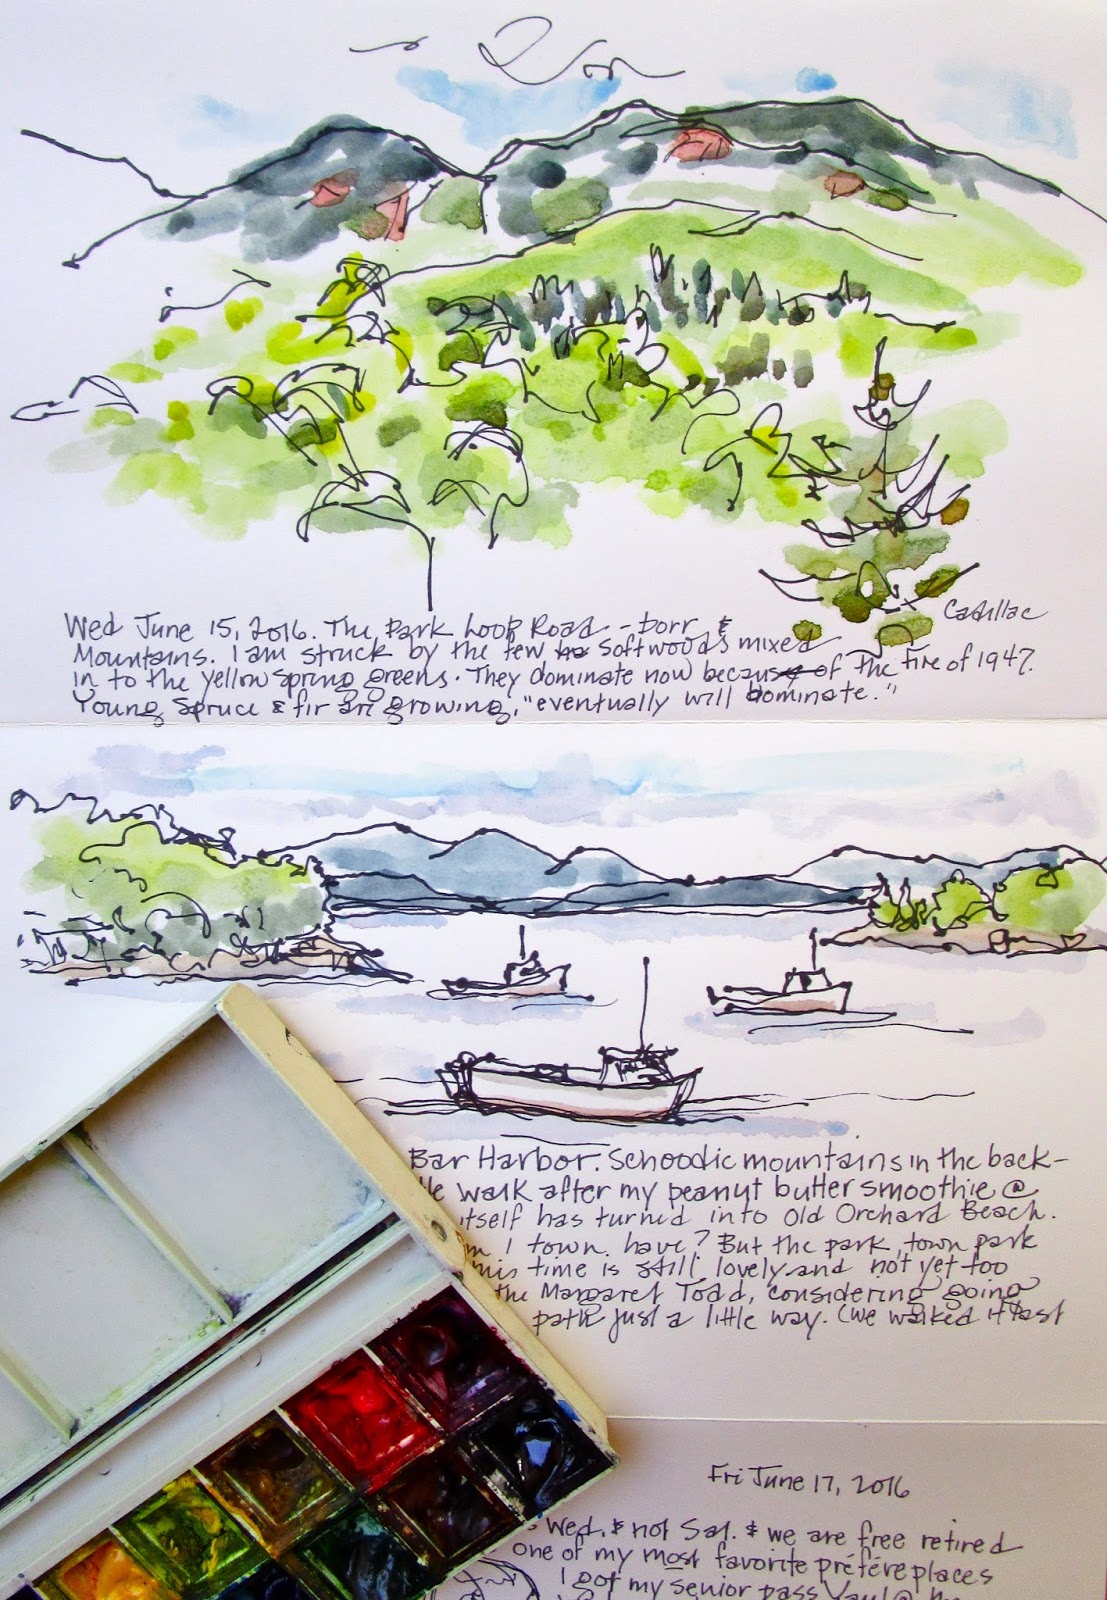 Cadillac
Wed June 15, 2016. The Park Loop Road - Dorr &
Mountains. I am struck by the few softwoods mixed
in to the yellow spring greens. They dominate now because of the fire of 1947.
Young Spruce & fir are growing, "eventually will dominate."
Bar Harbor. Schoodic mountains in the back-
walk after my peanut butter smoothie @
itself has turned into Old Orchard Beach.
I town have? But the park, town park
this time is still lovely and not yet too
the Margaret Todd, considering going
path just a little way. (We walked it last
Fri June 17, 2016
Wed. & not Sat. & we are free retired
one of my most favorite préfére places
I got my senior pass Yay! @